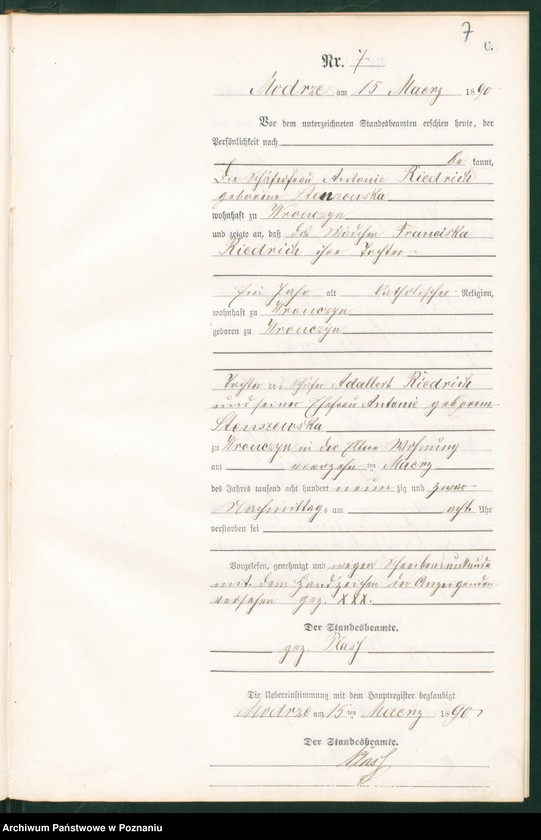 7
C.
Nr. 7
Modrze am 15 Maerz 1890
Vor dem unterzeichneten Standesbeamten erschien heute, der
Persönlichkeit nach
be kannt,
Die Schäferfrau Antonie Riedrich
geborene Stenzewska
wohnhaft zu Wronczyn
und zeigte an, daß das Mädchen Franciska
Riedrich ihre Tochter
Ein Jahr alt katholischer Religion,
wohnhaft zu Wronczyn
geboren zu Wronczyn
Tochter des Schäfer Adalbert Riedrich
und seiner Ehefrau Antonie geborene
Stenszewska
zu Wronczyn in der Eltern Wohnung
am vierzehn ten Maerz
des Jahres tausend acht hundert neun zig und
Nachmittags um acht Uhr
verstorben sei
Vorgelesen, genehmigt und wegen Schreibensunkunde
mit dem Handzeichen der Anzeigenden
versehen gez. XXX.
Der Standesbeamte.
gez.
Die Uebereinstimmung mit dem Hauptregister beglaubigt
Modrze am 15 ten Maerz 1890
Der Standesbeamte.
Archiwum Państwowe w Poznaniu